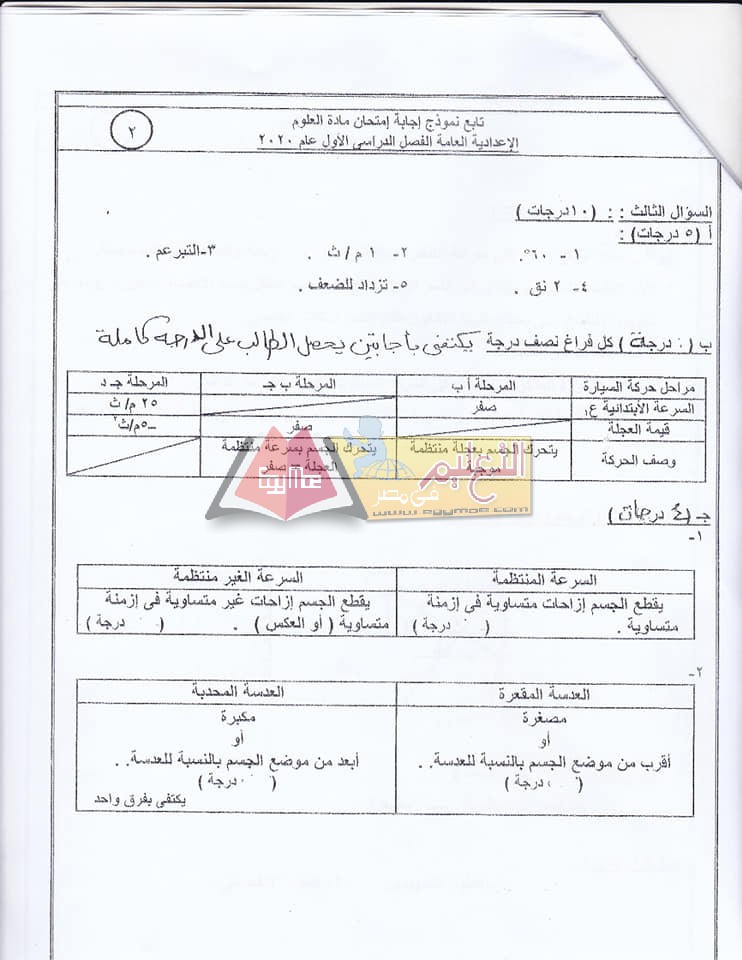 تابع نموذج إجابة إمتحان مادة العلوم
الإعدادية العامة الفصل الدراسي الأول عام ٢٠٢٠
٢
السؤال الثالث : : (١٠درجات )
أ (٥ درجات) :
١ - ٦٠°. ٢- ١ م/ ث . ٣- التبرعم .
٤- ٢ نق . ٥- تزداد للضعف .
ب ( درجة ) كل فراغ نصف درجة يكتفى بأجابتين يحصل الطالب على الدرجة كاملة
مراحل حركة السيارة المرحلة أ ب المرحلة ب جـ المرحلة جـ د
السرعة الابتدائية ع١ صفر ٢٥ م/ ث
قيمة العجلة صفر -٥م/ث٢
وصف الحركة يتحرك الجسم بعجلة منتظمة يتحرك الجسم بسرعة منتظمة
موجبة العجلة = صفر
التعليم فى مصر
www.egymoe.com
جـ (٤ درجات )
١-
السرعة المنتظمة السرعة الغير منتظمة
يقطع الجسم إزاحات متساوية فى إزمنة يقطع الجسم إزاحات غير متساوية فى إزمنة
متساوية . ( درجة ) متساوية ( أو العكس ) . ( درجة )
٢-
العدسة المقعرة العدسة المحدبة
مصغرة مكبرة
أو أو
أقرب من موضع الجسم بالنسبة للعدسة. . أبعد من موضع الجسم بالنسبة للعدسة. .
( درجة ) ( درجة )
يكتفى بفرق واحد